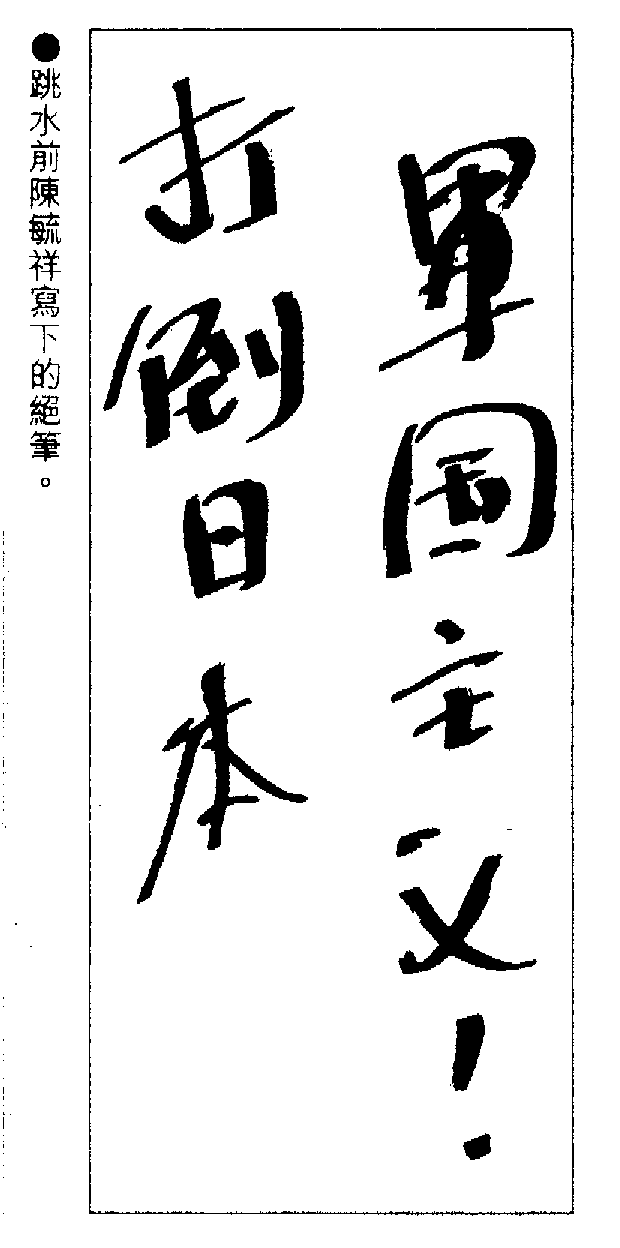 ●跳水前陳毓祥寫下的絕筆。
打倒日本
軍国主义!